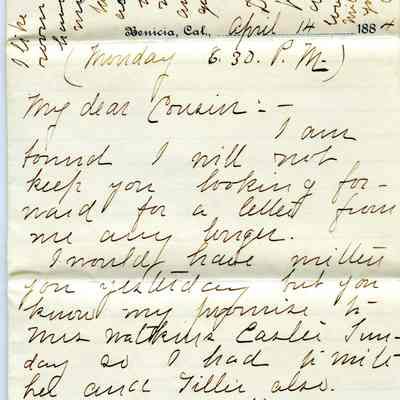 I like
room
Benicia, Cal., April 14 1884
(Monday 6.30. P. M.)
My dear Cousin:-
I am
bound I will not
keep you looking for-
ward for a letter from
me any longer.
I would have written
you yesterday but you
know my promise to
Mrs Watkins Easter Sun-
day so I had to write
her and Tillie also.